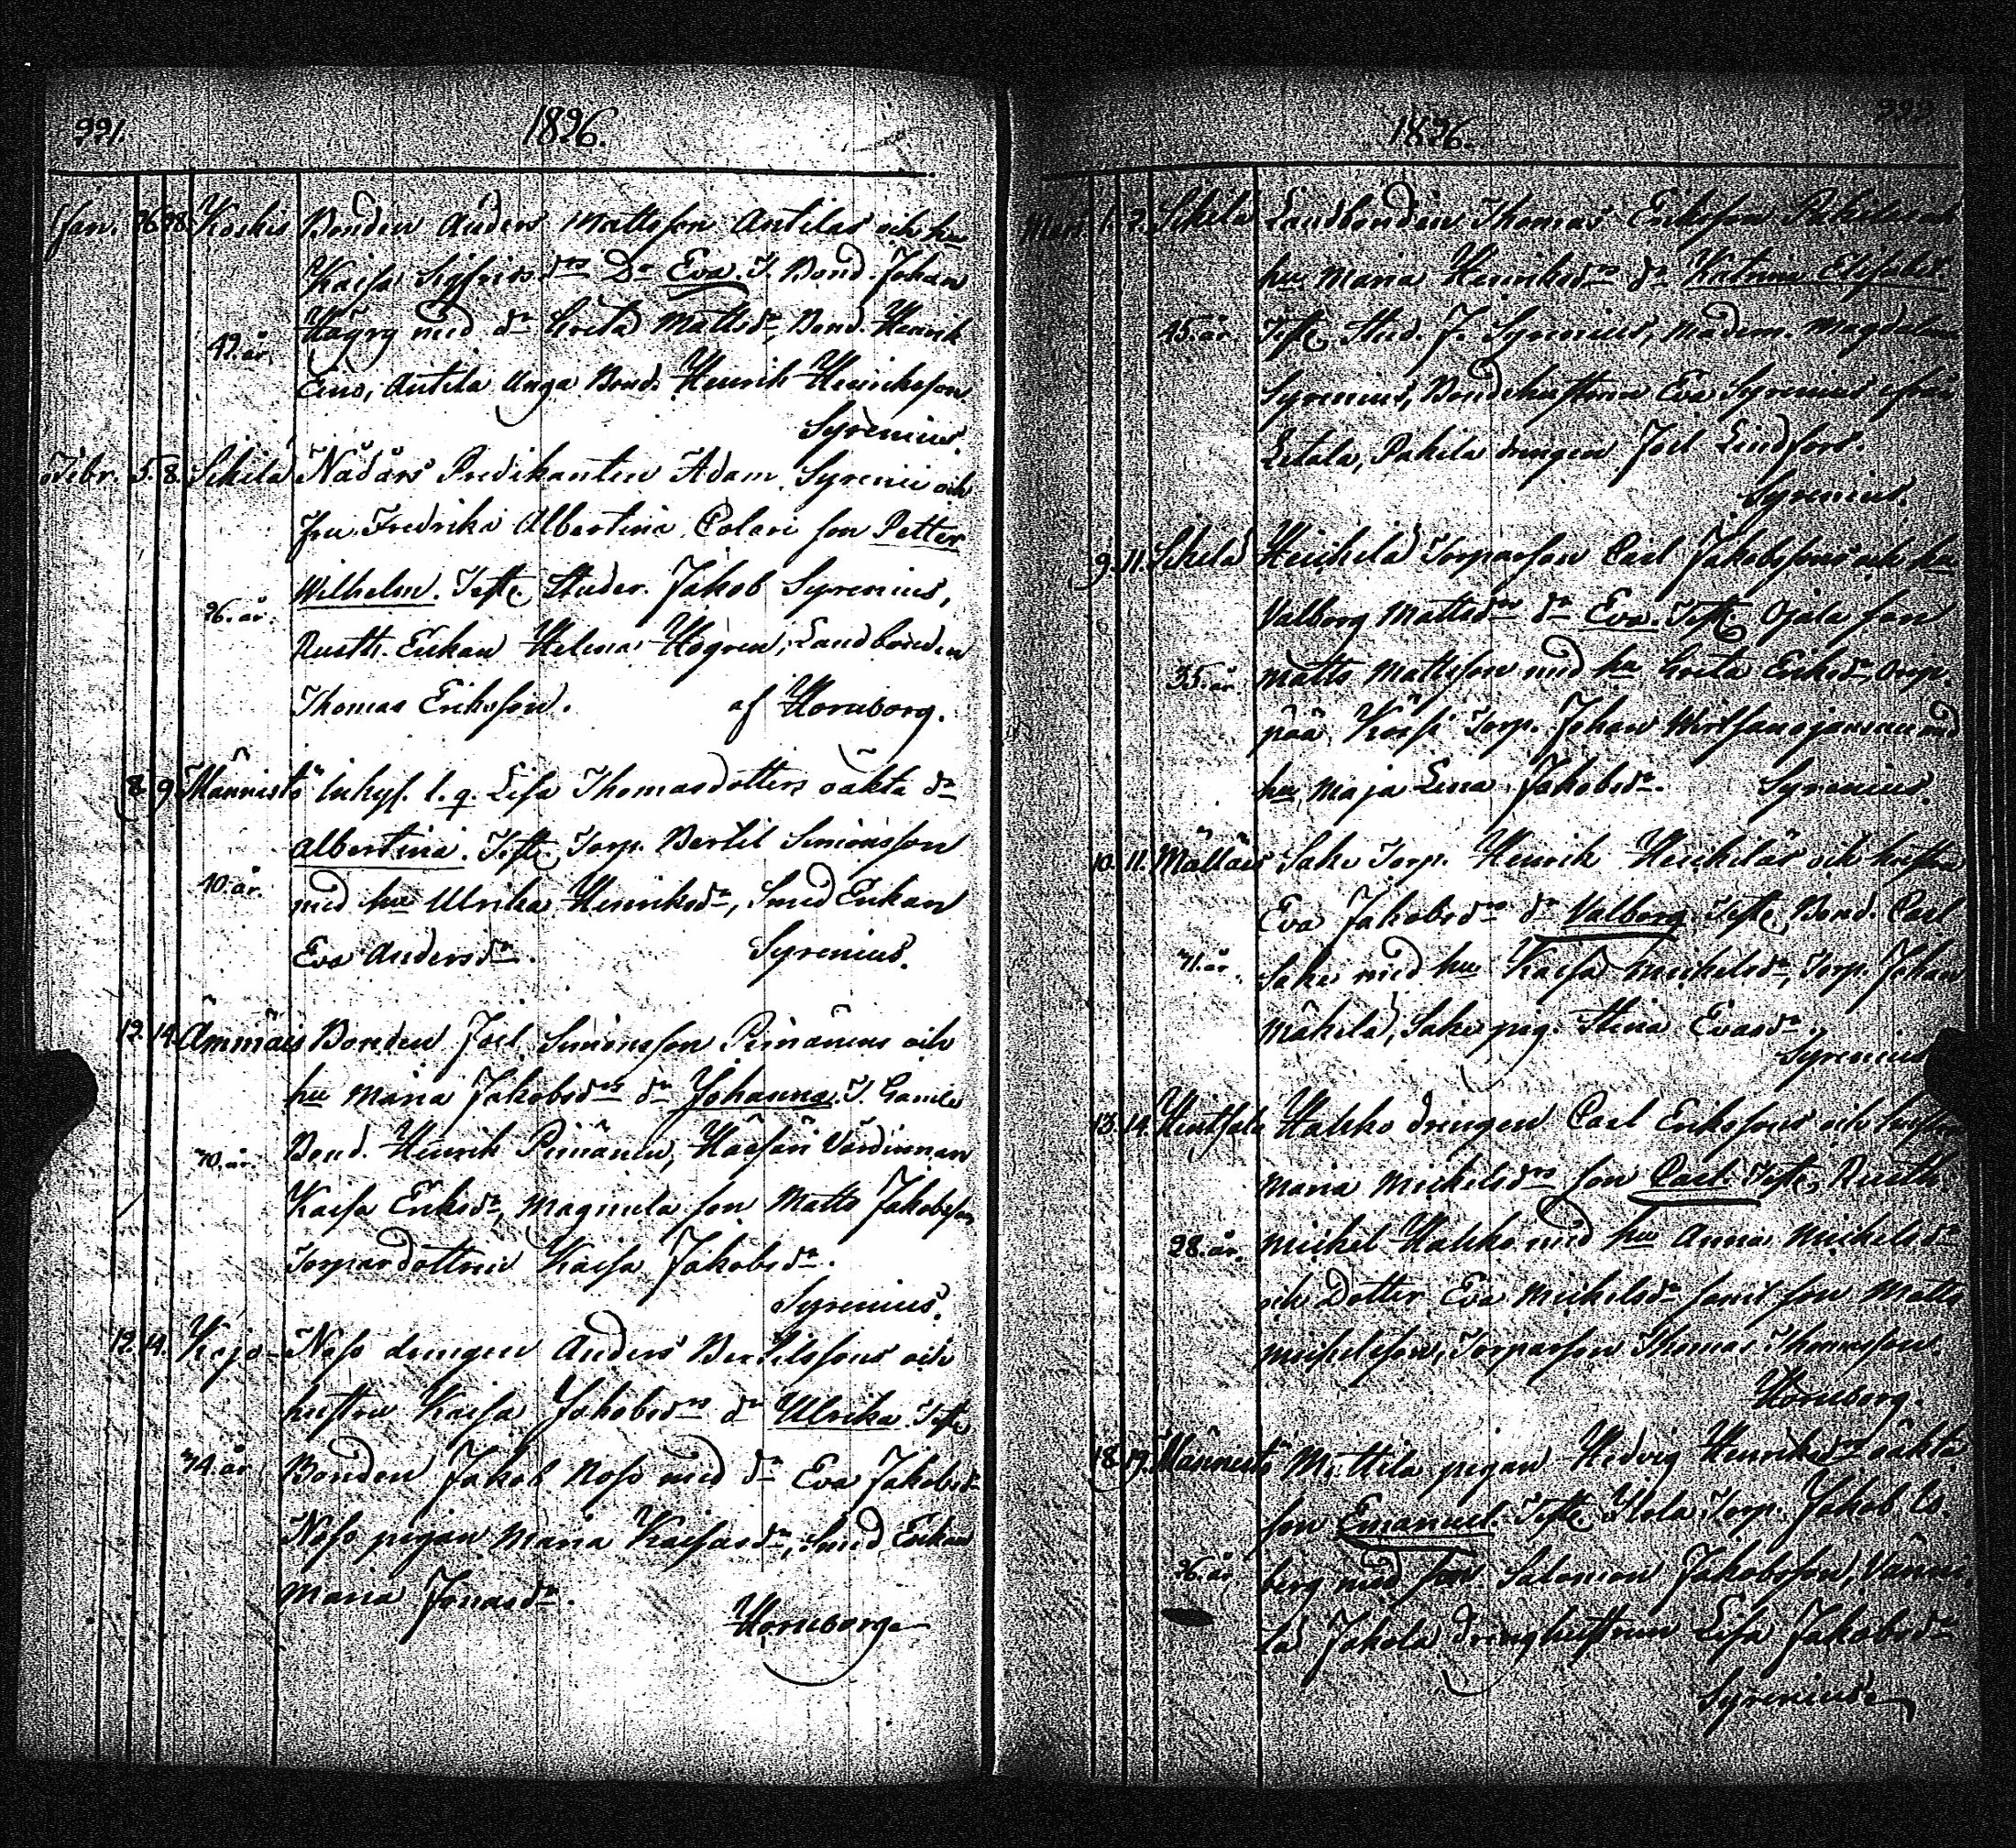 991.
1826.
Jan. 26. 28. Koskis Bonden Anders Mattsson Antilas och hu
Kaisa Sigfrids drs Dr Eva. T. Bond. Johan
Höyrg med dr Greta Mattsdr, Bond. Henrik
42. år.
Eino, Antila Unga Bond. Henrik Henriksson
Syrenius.
Febr. 5. 8. Sihila Nådårs Predikanten Adam Syrenii och
fru Fredrika Albertina Polari son Petter
Wilhelm. Teste Studer. Jakob Syrenius,
26. år.
Rustth. Enkan Helena Högren, Landbonden
Thomas Eriksson. af Hornborg.
8. 9. Männistö Inhys. l. q. Lisa Thomasdotters oäkta dr
Albertina. Teste Torp. Bertil Simonsson
40. år.
med hu Ulrika Henriksdr, Smed Enkan
Eva Andersdr. Syrenius.
12. 14. Ammäis Bonden Joel Simonsson Pimänens och
hu Maria Jakobsdrs dr Johanna. T. Gamle
Bond. Henrik Pimänen, Värdinnan
40. år.
Kaisa Eriksdr, Magnula son Matts Jakobsson
Torpardottren Kaisa Jakobsdr.
Syrenius.
12. 14. Kojo Noso drengen Anders Bertilssons och
hustru Kaisa Jakobsdrs dr Ulrika. Teste
24. år
Bonden Jakob Noso med dr Eva Jakobsdr
Noso pigan Maria Kaisasdr, Smed Enkan
Maria Jonasdr.
Hornborg
1826.
Mart. 1. 2. Sihila Landbonden Thomas Eriksson Pahilas och
hu Maria Henriksdrs dr Katrina Elisabet
45. år. Teste Stud. J. Syrenius, Madem. Magdalena
Syrenius, Bondehustrun Eva Syrenius ifrån
Letala, Pahila drengen Joel Lindfors.
Syrenius.
9. 11. Sihila Heickilä Torparson Carl Jakobssons och hu
Valborg Mattsdrs dr Eva. Teste Ojala son
35. år. Matts Mattsson med hu Greta Eriksdr,
Torp. Johan med
hu Maja Lena Jakobsdr. Syrenius.
10. 11. Mällais Sake Torp. Henrik Heickiläs och hustru
Eva Jakobsdrs dr Valborg Teste Bond. Carl
41. år. Sake med hu Kaisa Mickelsdr, Torp. Johan
Mäkelä, Sake pig. Stina Evasdr.
Syrenius
13. 14. Hahko drengen Carl Erikssons och hustru
Maria Mickelsdrs son Carl. Teste Rustth.
28. år. Mickel Hahko med hu Anna Mickelsdr
och Dotter Eva Mickelsdr samt son Matts
Mickelsson, Torparson Thomas Thomasson.
Hornborg.
18. 19. Männistö Mattila pigan Hedvig Henriksdrs oäkta
son Emanuel. Teste Torp. Jakob
26. år berg med son Salomon Jakobsson, Vänni
lä Jakola drenghustrun Lisa Jakobsdr
Syrenius